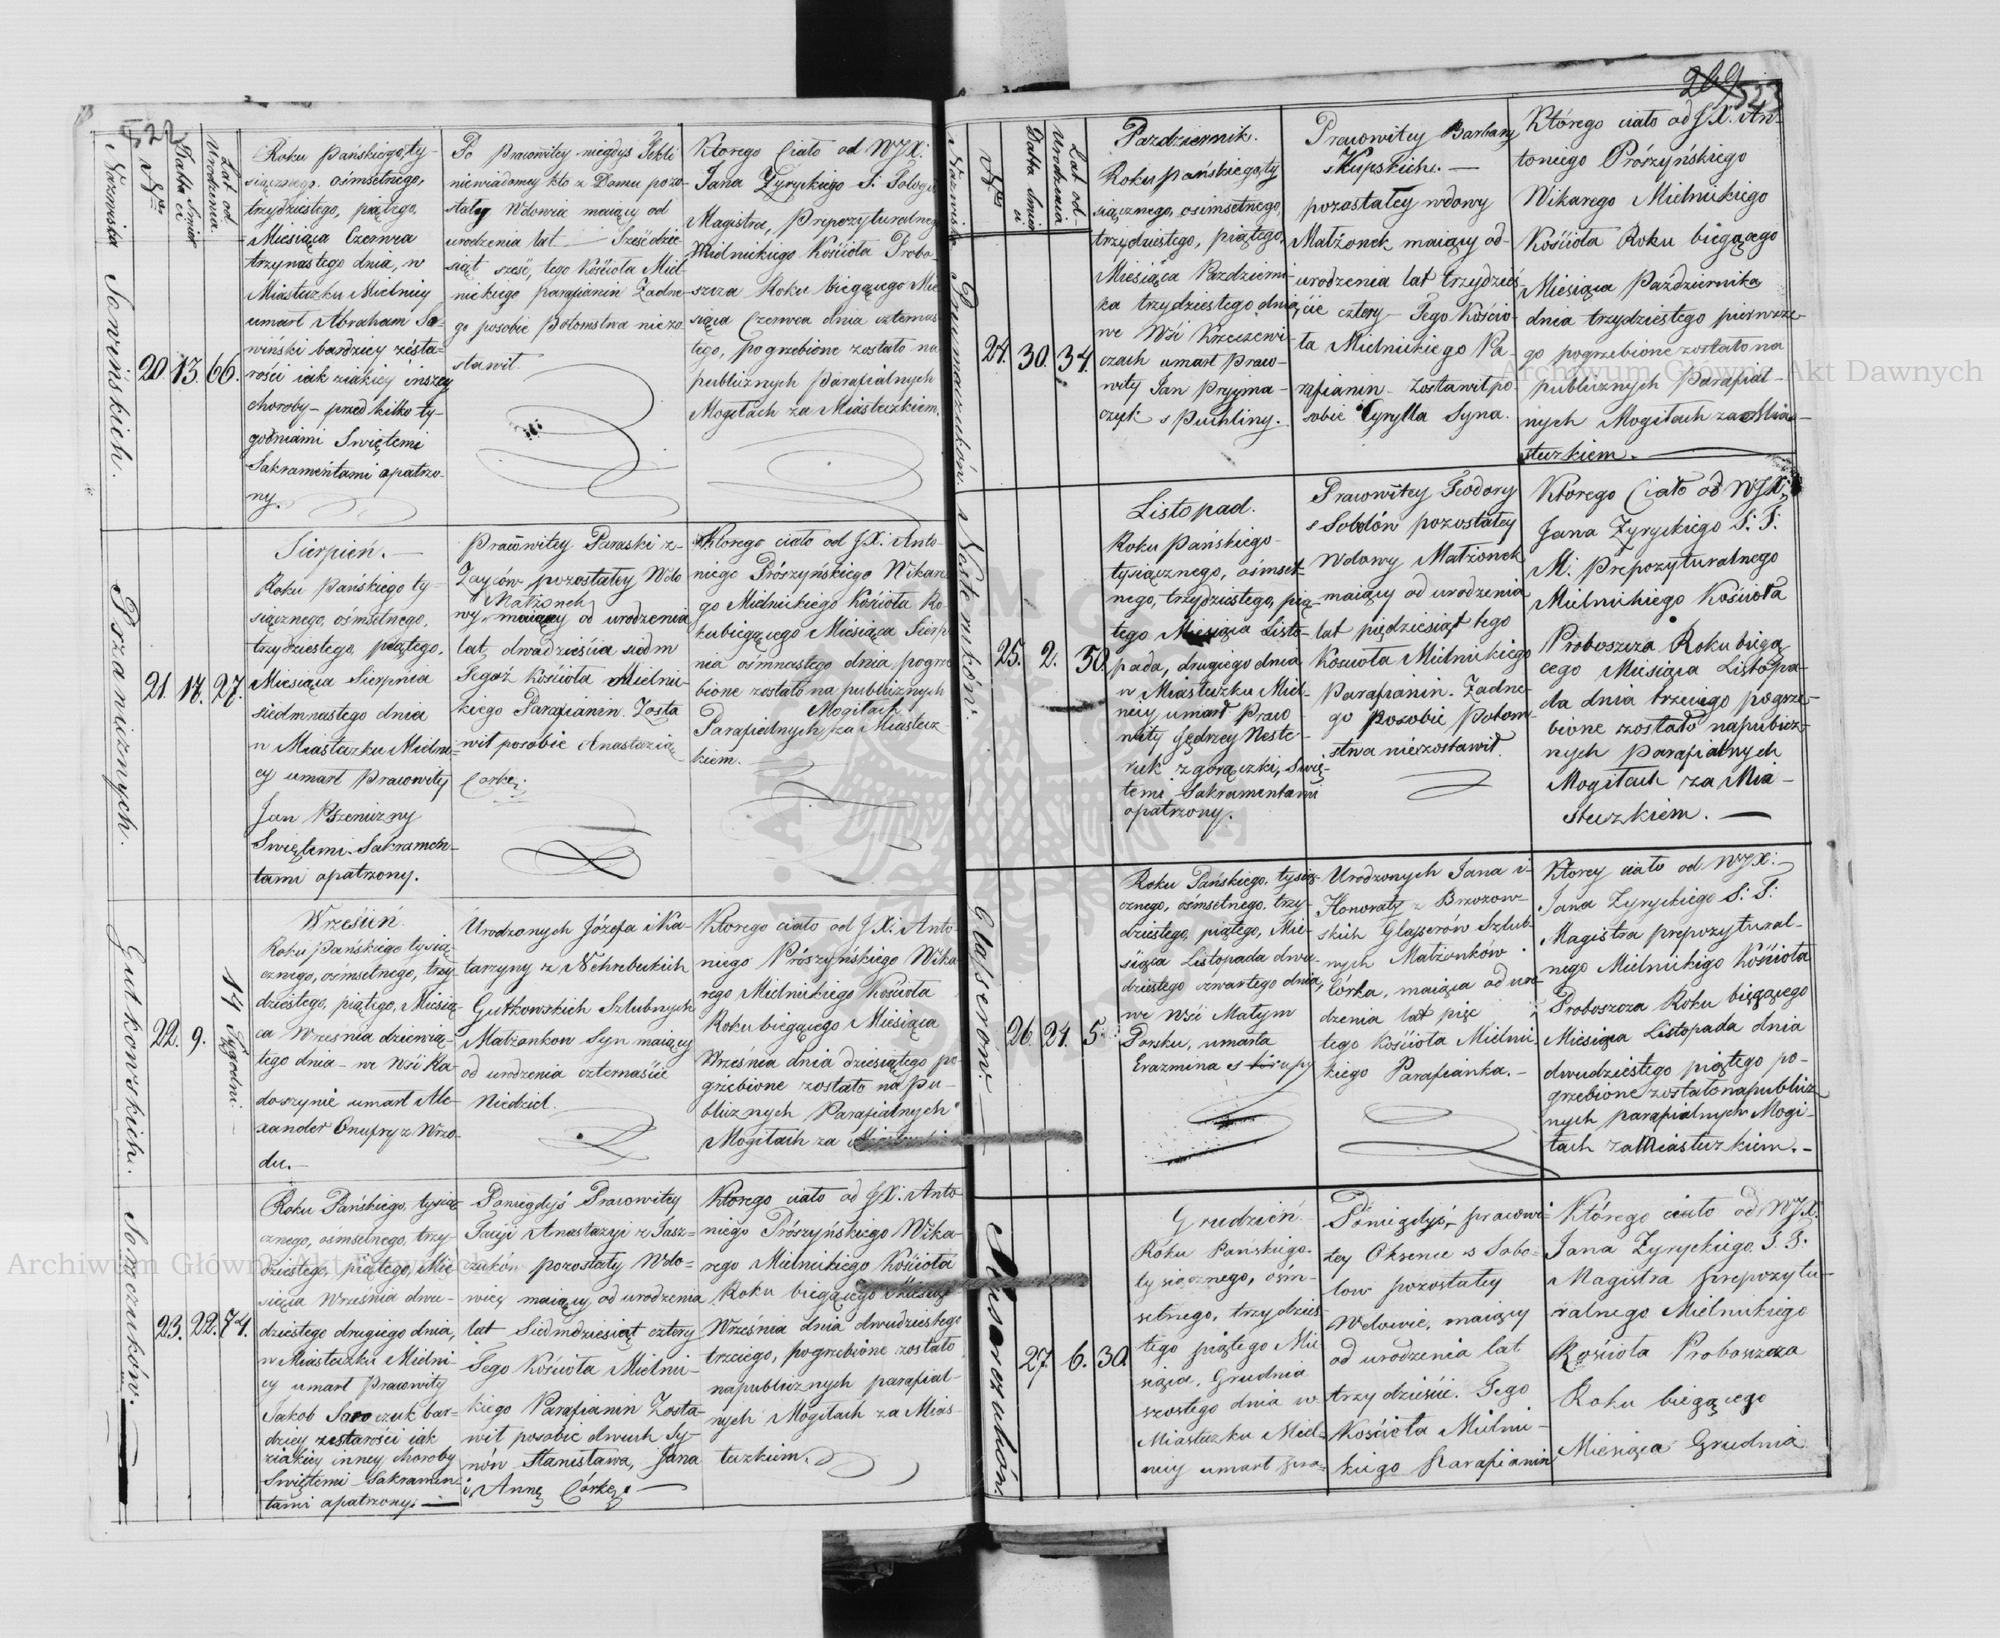 522
Nazwiska
Nro
Datta dnia Smier ci
Lat od Urodzenia.
Sawińskich.
20. 13. 66.
Roku Pańskiego, ty-
siącznego, ośmsetnego,
trzydziestego, piątego,
Miesiąca Czerwca
trzynastego dnia, w
Miasteczku Mielnicy
umarł Abraham Sa-
wiński bardziey zesta-
rości iak ziakiey inszey
choroby – przed kilko ty-
godniami Swiętemi
Sakramentami opatrzo-
ny.
Po Pracowitey niegdys Tekli
niewiadomey kto z Domu pozo-
stałey Wdowiec maiący od
urodzenia lat Sześćdzie-
siąt sześć, tego Kościoła Miel-
nickiego parafianin Żadne-
go posobie Potomstwa niezo
stawił.
Ktorego Ciało od WJX:
Jana Żyryckiego S: Teologii
Magistra, Prepozyturalnego
Mielnickiego Kościoła Probo-
szcza Roku biegącego Mie
siąca Czerwca dnia czternas-
tego, pogrzebione zostało na
publicznych Parafialnych
Mogiłach za Miasteczkiem.
Pszanicznych.
21. 17. 27.
Sierpień. —
Roku Pańskiego ty-
siącznego, ośmsetnego,
trzydziestego, piątego,
Miesiąca Sierpnia
siedmnastego dnia
w Miasteczku Mielni-
cy umarł Pracowity
Jan Pszeniczny
Swiętemi Sakramen-
tami opatrzony.
Pracowitey Paraski z-
Zaycow pozostałey Wdo
Małzonek
wy maiący od urodzenia
lat, dwadzieścia siedm
Tegoż Kościoła Mielni-
kiego Parafianin. Zosta
wił posobie Anastazią
Corkę.
Ktorego ciało od JX: Anto-
niego Prószyńskiego Wikare
go Mielnickiego Kościoła Ro-
kubiegącego Miesiąca Sierp
nia ośmnastego dnia, pogrze
bione zostało na publicznych
Mogiłach
Parafialnych za Miastecz
kiem.
Gutkowskich.
22. 9. 14 Tygodni.
Wrzesień
Roku Pańskiego tysią-
cznego, ośmsetnego, trzy-
dziestego, piątego, Miesią-
ca Wrzesnia dziewią-
tego dnia – we Wsi Ka-
doszynie umarł Ale-
xander Onufry z Wrzo-
du. —
Urodzonych Józefa i Ka-
tarzyny z Nehrebeckich
Gutkowskich Szlubnych
Małżonkow Syn maiący
od urodzenia czternaście
Niedziel.
Ktorego ciało od JX: Anto-
niego Prószyńskiego Wika-
rego Mielnickiego Kościoła
Roku biegącego Miesiąca
Września dnia dziesiątego po-
grzebione zostało na Pu-
blicznych Parafialnych
Mogiłach za
Sawczuków.
23. 22. 74.
Roku Pańskiego, tysią-
cznego, ośmsetnego, trzy-
dziestego, piątego, Mie-
siąca Września dwu-
dziestego drugiego dnia,
w Miasteczku Mielni-
cy umarł Pracowity
Jakob Sawczuk bar-
dziey zestarości iak
ziakiey inney choroby
Swiętemi Sakramen-
tami opatrzony. —
Poniegdyś Pracowitey
Anastazyi z Tasz-
czuków pozostały Wdo-
wiec maiący od urodzenia
lat Siedmdziesiąt cztery
Tego Kościoła Mielni-
kiego Parafianin Zosta-
wił posobie dwuch Sy-
nów Stanisława, Jana
i Annę Córkę. —
Ktorego ciało od JX: Anto-
niego Prószyńskiego Wika-
rego Mielnickiego Kościoła
Roku biegącego Miesiąca
Września dnia dwudziestego
trzeciego, pogrzebione zostało
napublicznych parafial-
nych Mogiłach za Mias-
teczkiem.
269
523
Nazwiska
Nro
Datta dnia
Lat od- Urodzenia
24. 30. 34.
Pazdziernik.
Roku Pańskiego, ty-
siącznego, osimsetnego,
trzydziestego, piątego,
Miesiąca Pazdzierni-
ka trzydziestego dnia
we Wsi Krzeczewi-
czach umarł Praco-
wity Jan Pryyma-
czyk s Puchliny.
Pracowitey Barbary
Skupskich. —
pozostałey wdowy
Małżonek maiący od-
urodzenia lat trzydzies-
cie cztery – Tego Koscio-
ła Mielnickiego Pa-
rafianin zostawił po-
sobie Cyrylla Syna.
Którego ciało od JX. An-
toniego Prószyńskiego
Wikarego Mielnickiego
Kościoła Roku biegącego
Miesiąca Października
dnia trzydziestego pierwsze-
go pogrzebione zostało na
publicznych Parafial-
nych Mogiłach za Mia-
steczkiem. —
Nesteruków.
25. 2. 50.
Listopad.
Roku Pańskiego-
tysiącznego, ośmset-
nego, trzydziestego, pią-
tego Miesiąca Listo-
pada, drugiego dnia
w Miasteczku Miel-
nicy umarł Praco
wity Jędrzey Neste-
ruk z gorączki, Swię-
temi Sakramentami
opatrzony.
Pracowitey Teodory
s Sobolów pozostałey
Wdowy Małżonek
maiący od urodzenia
lat pięćdziesiąt tego
Kościoła Mielnickiego
Parafianin. Żadne-
go posobie Potom-
stwa niezostawił.
Ktorego Ciało od WJX:
Jana Żyryckiego S: T:
M: Prepozyturalnego
Mielnickiego Kościoła
Proboszcza Roku biegą
cego Miesiąca Listopa-
da dnia trzeciego pogrze-
bione zostało napublicz-
nych parafialnych
Mogiłach za Mia-
steczkiem. —
Glayserów.
26. 24. 5.
Roku Pańskiego, tysią-
cznego, ośmsetnego, trzy-
dziestego, piątego, Mie-
siąca Listopada dwu-
dziestego czwartego dnia,
we Wsi Małym
Porsku, umarła
Erazmina s
Urodzonych Jana i-
Honoraty z Brzozow-
skich Glayserów Szlub-
nych Małżonków
Córka, maiąca od uro-
dzenia lat pięć
tego Kościoła Mielni-
kiego Parafianka. –
Ktorey ciało od WJX:
Jana Żyryckiego S: T:
Magistra prepozytural-
nego Mielnickigo Kościoła
Proboszcza Roku biegącego
Miesiąca Listopada dnia
dwudziestego piątego po-
grzebione zostało napublicz-
nych parafialnych Mogi-
łach za Miasteczkiem. –
27. 6. 30.
Grudzień
Roku Pańskiego-
tysiącznego, ośm-
setnego, trzydzies-
tego piątego Mie
siąca, Grudnia
szostego dnia w
Miasteczku Miel-
nicy umarł Pra-
Poniegdyś pracowi-
tey Oksenie s Sobo-
low pozostałey
Wdowiec, maiący
od urodzenia lat
trzydzieście. Tego
Kościoła Mielni-
kiego Parafianin
Którego ciało od WJX:
Jana Żyryckiego S. T.
Magistra prepozytu-
ralnego Mielnickiego
Kościoła Proboszcza
Roku biegącego
Miesiąca Grudnia
Archiwum Główne Akt Dawnych
Archiwum Główne Akt Dawnych